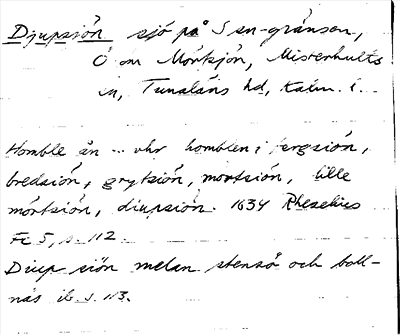 Djupsiön sjö på S sn-gränsen,
Ö om Mörtsjön, Misterhults
sn, Tunaläns hd, Kalm. l.
Homble ån ... vhr homblen i bergsiön,
bredsiön, grytsiön, mortsiön, lille
mörtsiön, diupsiön. 1634 Rhezelius
Fc 5, s. 112.
Diup siön melan stensö och boll-
näs ib. s. 113.